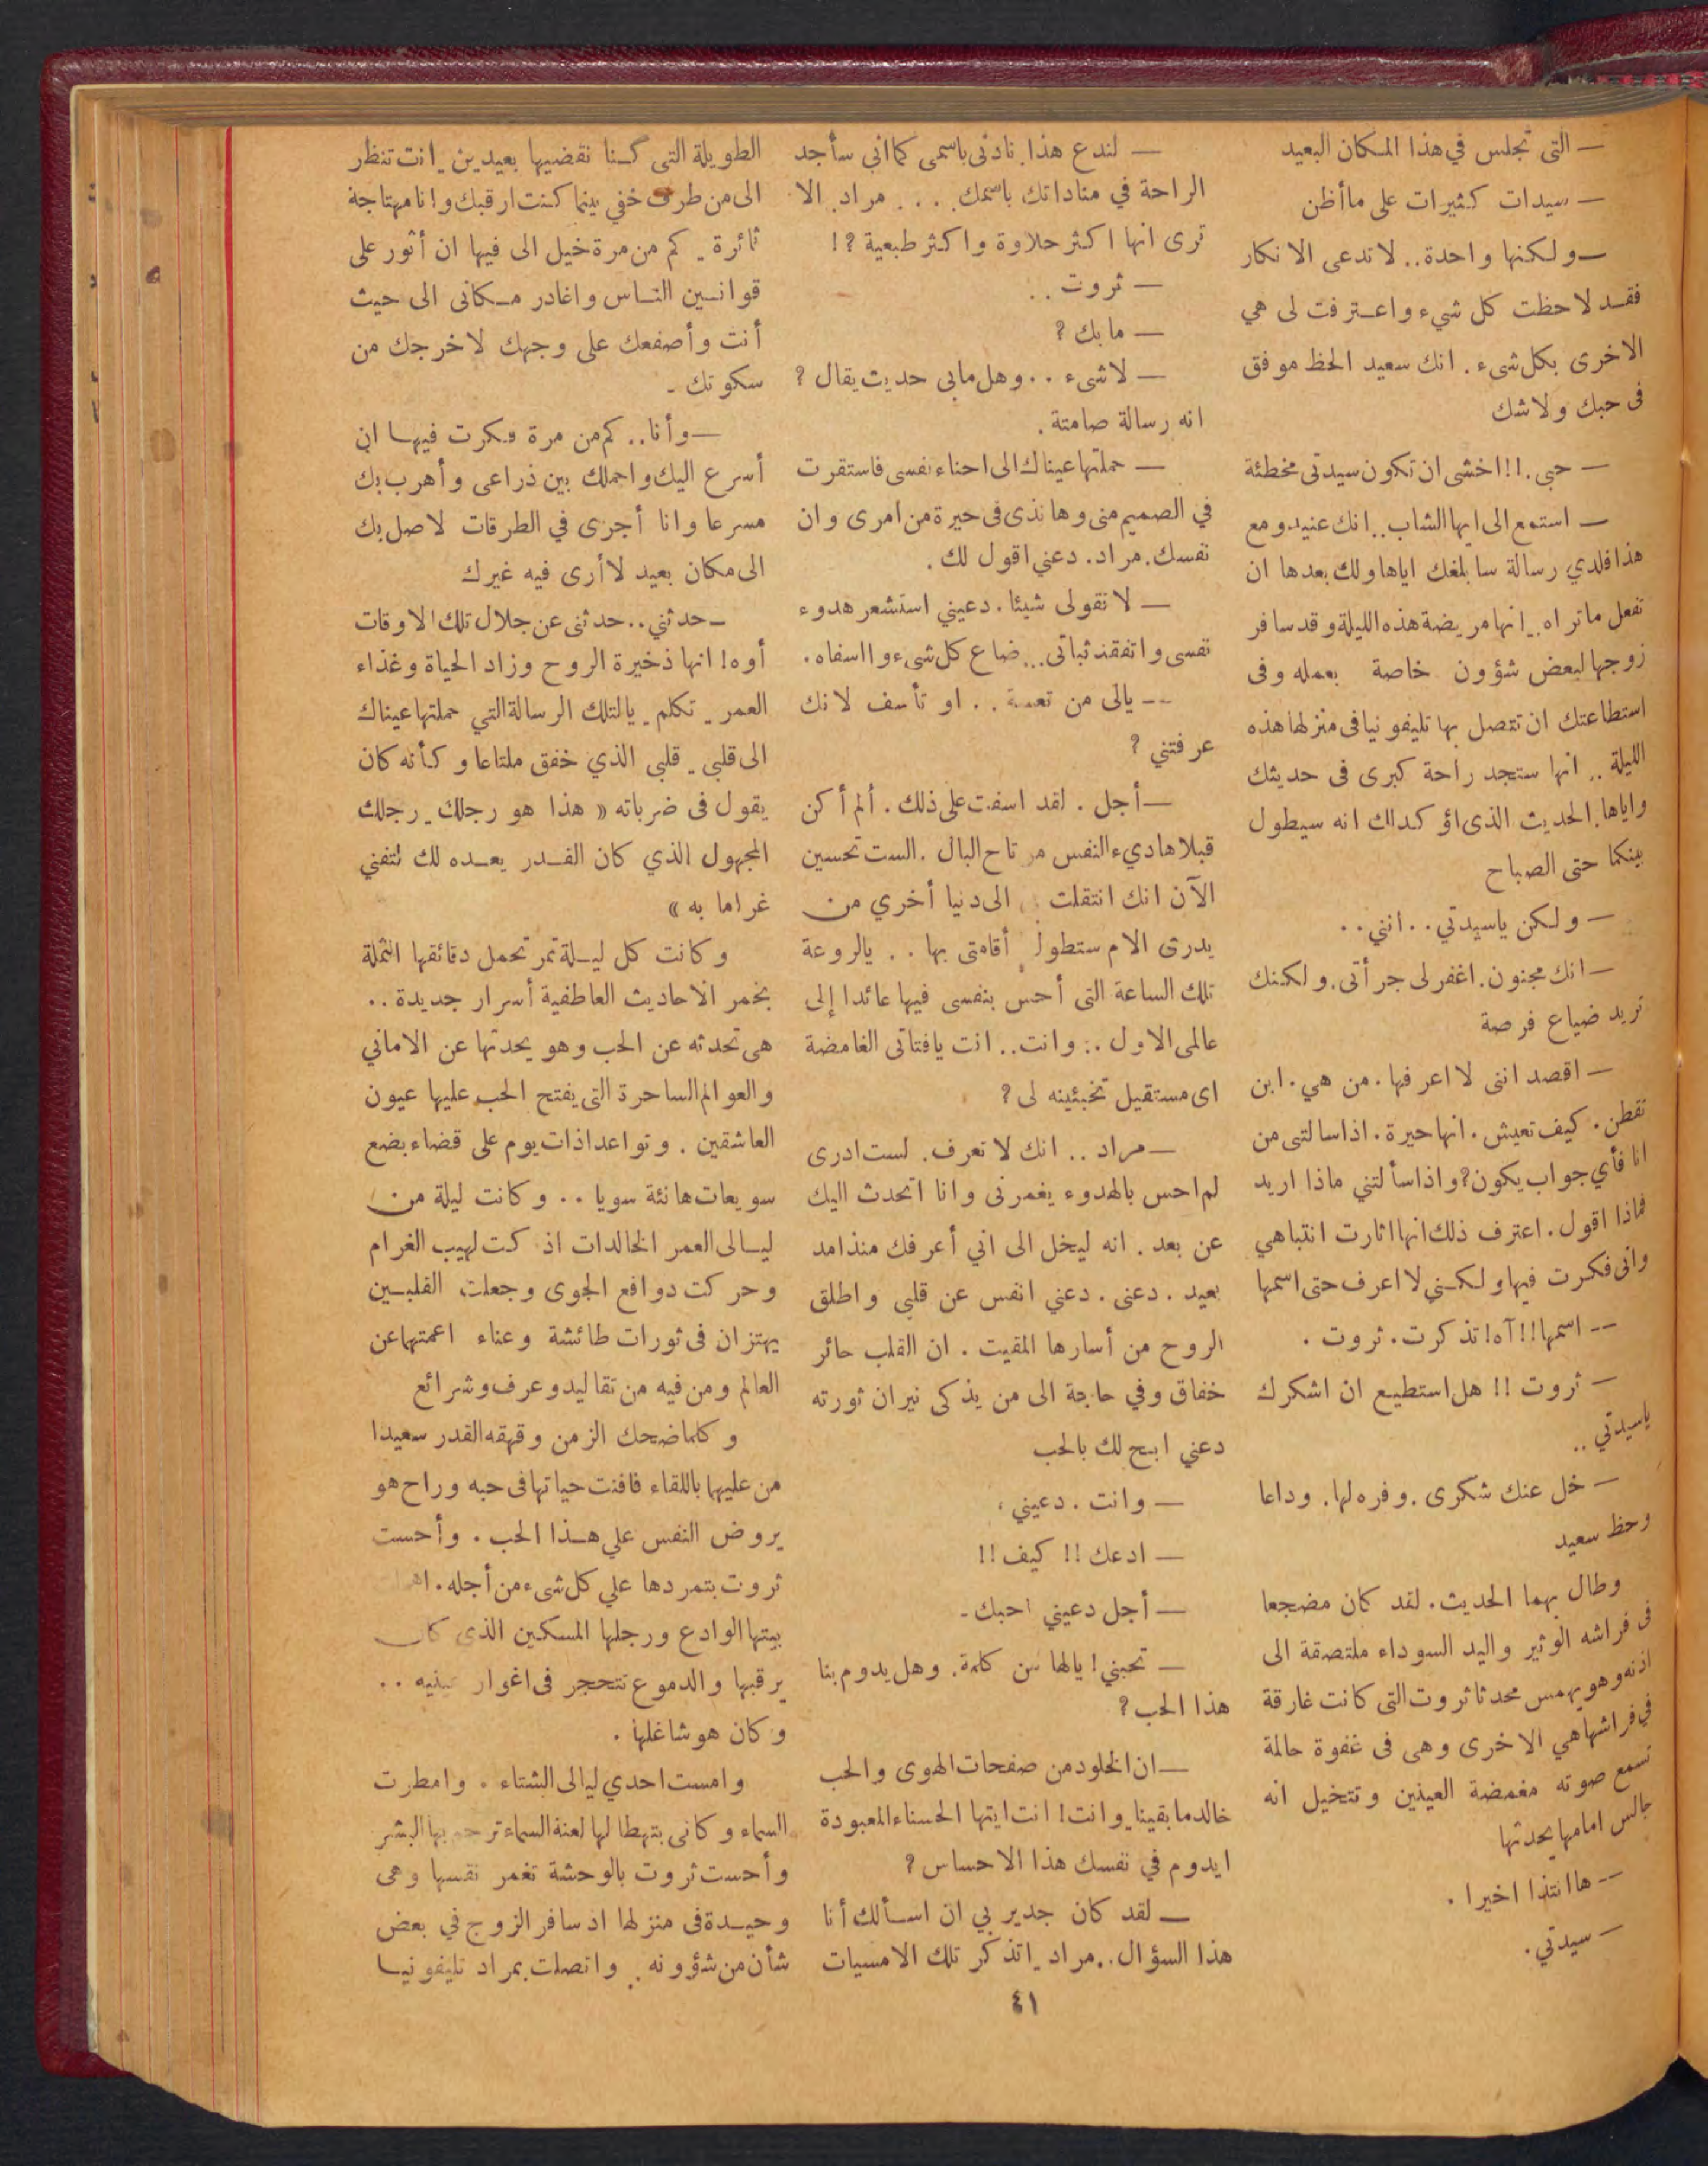 — التى تجلس في هذا المكان البعيد
— سيدات كثيرات على ماأظن
— ولكنها واحدة.. لا تدعى الانكار
فقد لاحظت كل شيء واعترفت لى هي
الاخرى بكل شىء. انك سعيد الحظ موفق
فى حبك ولاشك
— حبى.!! اخشى ان تكون سيدتى مخطئة
— استمع الى ايها الشاب.. انك عنيد ومع
هذا فلدي رسالة سابلغك اياها ولك بعدها ان
تفعل ما تراه.. انها مريضة هذه الليلة وقد سافر
زوجها لبعض شؤون خاصة بعمله وفى
استطاعتك ان تتصل بها تليفونيا فى منزلها هذه
الليلة.. انها ستجد راحة كبرى فى حديثك
واياها. الحديث الذى اؤكد لك انه سيطول
بينكما حتى الصباح
— ولكن ياسيدتي.. انني..
— انك مجنون. اغفر لى جرأتى. ولكنك
تريد ضياع فرصة
— اقصد اننى لا اعرفها. من هي. ابن
تقطن. كيف تعيش. انها حيرة. اذا سالتى من
انا فأي جواب يكون؟ واذا سألتني ماذا اريد
فماذا اقول. اعترف ذلك انها اثارت انتباهي
وانى فكرت فيها ولكني لا اعرف حتى اسمها
-- اسمها!! آه! تذكرت. ثروت.
— ثروت!! هل استطيع ان اشكرك
ياسيدتي..
— خل عنك شكرى. وفره لها. وداعا
وحظ سعيد
وطال بهما الحديث. لقد كان مضجعا
فى فراشه الوثير واليد السوداء ملتصقة الى
اذنه وهو يهمس محدثا ثروت التى كانت غارقة
في فراشها هي الاخرى وهى فى غفوة حالمة
تسمع صوته مغمضة العينين وتتخيل انه
جالس امامها يحدثها
-- ها انتذا اخيرا.
— سيدتي.
— لندع هذا. نادنى باسمى كما اني سأجد
الراحة في مناداتك باسمك.... مراد. الا
ترى انها اكثر حلاوة واكثر طبعية؟!
— ثروت..
— مابك؟
— لاشىء.. وهل مابى حديث يقال؟
انه رسالة صامتة.
— حملتها عيناك الى احناء نفسى فاستقرت
في الصميم منى وهانذى فى حيرة من امرى وان
نفسك. مراد. دعني اقول لك.
— لا تقولى شيئا. دعيني استشعر هدوء
نفسى واتفقد ثباتى... ضاع كل شىء وااسفاه.
-- يالى من تعسة.. او تأسف لانك
عرفتني؟
— أجل. لقد اسفت على ذلك. ألم أكن
قبلا هاديء النفس مرتاح البال. الست تحسين
الآن انك انتقلت الى دنيا أخري من
يدرى الام ستطول أقامتى بها.. يالروعة
تلك الساعة التى أحس بنفسى فيها عائدا إلى
عالمى الاول.. وانت.. انت يافتاتى الغامضة
اى مستقبل تخبئينه لى؟
— مراد.. انك لا تعرف. لست ادرى
لم احس بالهدوء يغمرنى وانا اتحدث اليك
عن بعد. انه ليخل الى اني أعرفك منذ امد
بعيد. دعنى. دعني انفس عن قلبي واطلق
الروح من أسارها المقيت. ان القلب حائر
خفاق وفي حاجة الى من يذكى نيران ثورته
دعني ابح لك بالحب
— وانت. دعيني،
— ادعك!! كيف!!
— أجل دعيني احبك.
— تحبني! يالها من كلمة. وهل يدوم بنا
هذا الحب؟
— ان الخلود من صفحات الهوى والحب
خالد ما بقينا. وانت! انت ايتها الحسناء المعبودة
ايدوم في نفسك هذا الاحساس؟
— لقد كان جدير بي ان اسألك أنا
هذا السؤال.. مراد. اتذكر تلك الامسيات
الطويلة التى كنا نقضيها بعيدين. انت تنظر
الى من طرف خفي بينما كنت ارقبك وانا مهتاجة
ثائرة. كم من مرة خيل الى فيها ان أثور على
قوانين الناس واغادر مكانى الى حيث
أنت وأصفعك على وجهك لاخرجك من
سكوتك.
— وأنا.. كم من مرة فكرت فيها ان
أسرع اليك واحملك بين ذراعى وأهرب بك
مسرعا وانا أجرى في الطرقات لاصل بك
الى مكان بعيد لا أرى فيه غيرك
— حدثني.. حدثنى عن جلال تلك الاوقات
أوه! انها ذخيرة الروح وزاد الحياة وغذاء
العمر. تكلم. يالتلك الرسالة التي حملتها عيناك
الى قلبي. قلبى الذي خفق ملتاعا وكأنه كان
يقول فى ضرباته « هذا هو رجلك. رجلك
المجهول الذي كان القدر يعده لك لتفني
غراما به »
وكانت كل ليلة تمر تحمل دقائقها الثملة
بخمر الاحاديث العاطفية أسرار جديدة..
هى تحدثه عن الحب وهو يحدثها عن الاماني
والعوالم الساحرة التى يفتح الحب عليها عيون
العاشقين. وتواعدا ذات يوم على قضاء بضع
سويعات هانئة سويا.. وكانت ليلة من
ليالى العمر الخالدات اذ كت لهيب الغرام
وحركت دوافع الجوى وجعلت القلبين
يهتزان فى ثورات طائشة وعناء اعمتها عن
العالم ومن فيه من تقاليد وعرف وشرائع
وكلما ضحك الزمن وقهقه القدر سعيدا
من عليهما باللقاء فافنت حياتها فى حبه وراح هو
يروض النفس علي هذا الحب. وأحست
ثروت بتمردها علي كل شىء من أجله.
بيتها الوادع ورجلها المسكين الذى كان
يرقبها والدموع تتحجر فى اغوار عينيه..
وكان هو شاغلها.
وامست احدي ليالى الشتاء. وامطرت
السماء وكانى بتهطالها لعنة السماء ترجم بها البشر
وأحست ثروت بالوحشة تغمر نفسها وهى
وحيدة فى منزلها اذ سافر الزوج في بعض
شأن من شؤونه. واتصلت بمراد تليفونيا
٤١